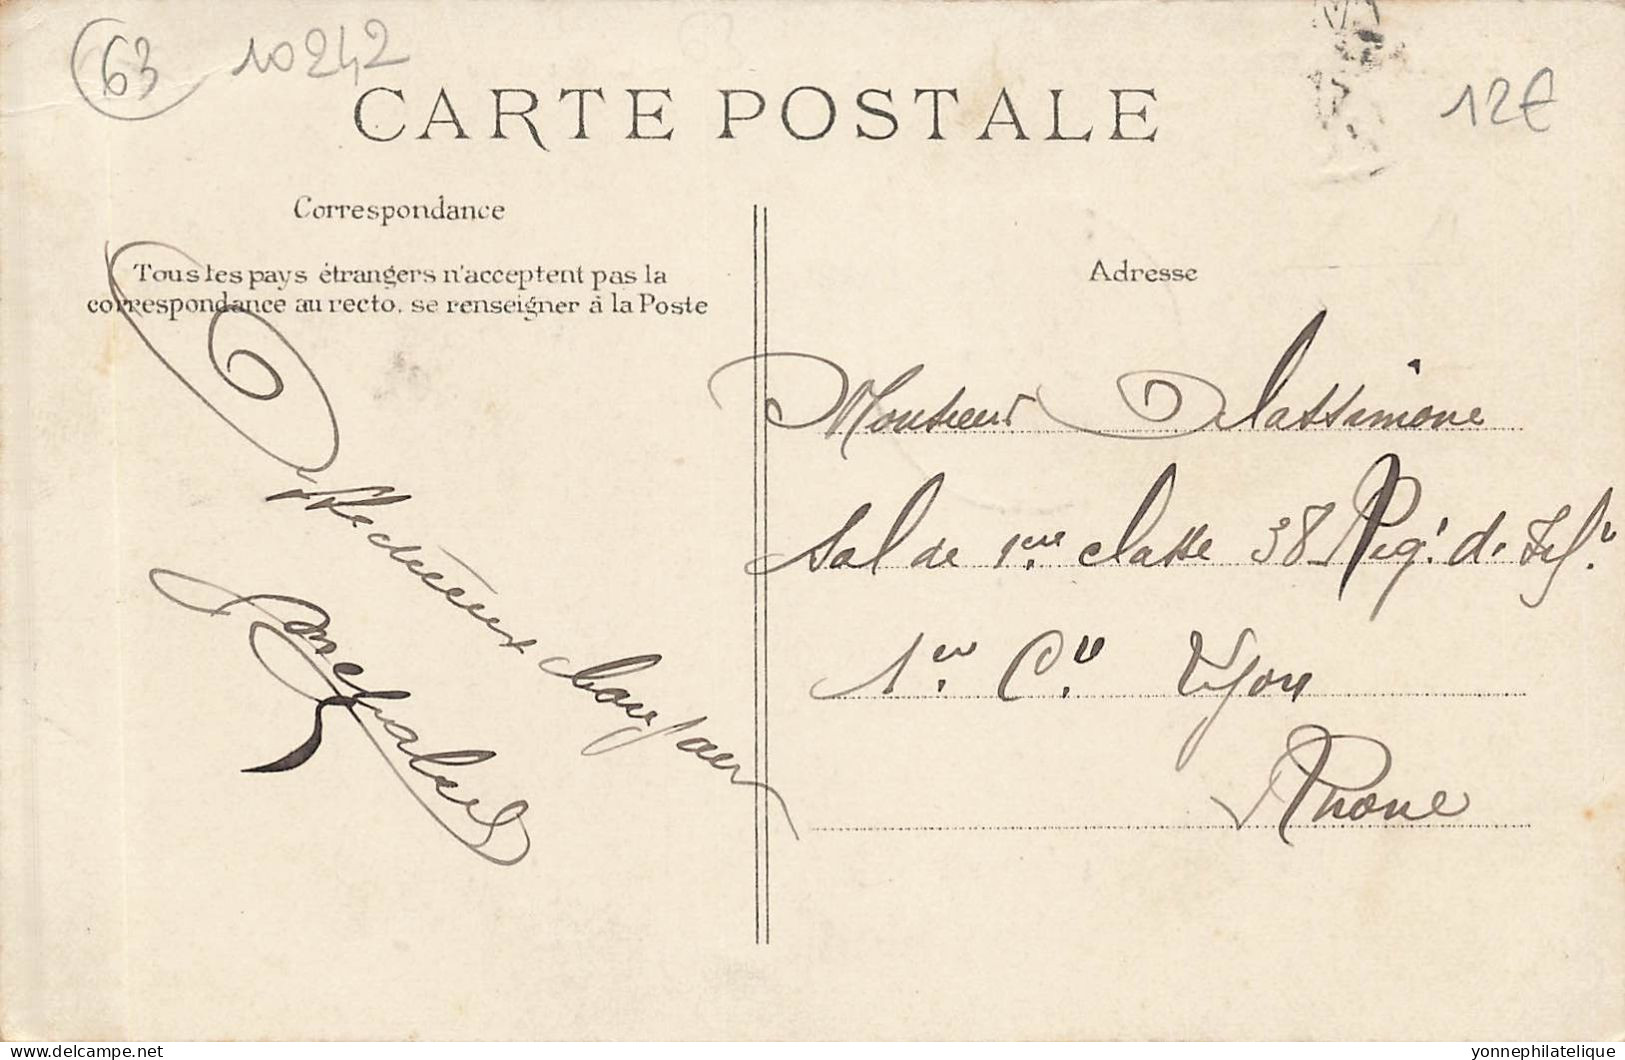 63 10242
12€
CARTE POSTALE
Correspondance
Tous les pays étrangers n'acceptent pas la
correspondance au recto. se renseigner à la Poste
Adresse
Monsieur Classimone
Sol de 1ère classe 38 Reg.t d. Inf.
1er. C.ie Lyon
Rhône
delcampe.net
yonnephilatelique